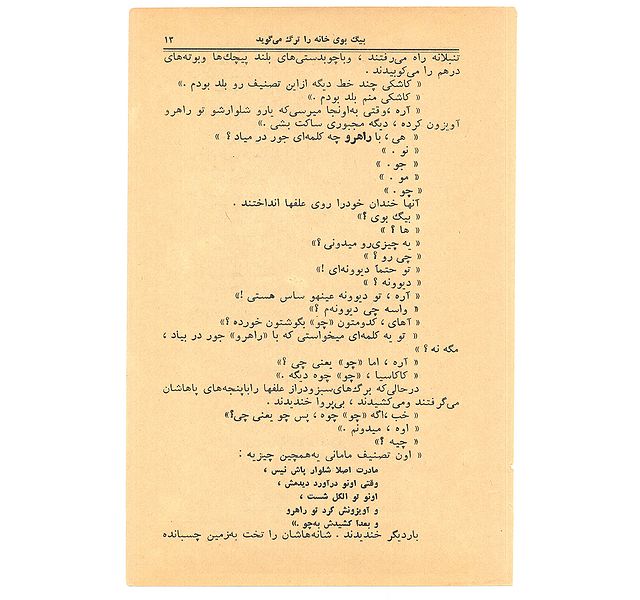 بیگ بوی خانه را ترک می‌گوید ۱۳
تنبلانه راه می‌رفتند ، وباچوبدستی‌های بلند پیچك‌ها وبوته‌های
درهم را می‌کوبیدند .
« کاشکی چند خط دیگه ازاین تصنیف رو بلد بودم .»
« کاشکی منم بلد بودم .»
« آره ،وقتی به‌اونجا میرسی‌که یارو شلوارشو تو راهرو
آویزون کرده ، دیگه مجبوری ساکت بشی .»
« هی ، با راهرو چه کلمه‌ای جور در میاد ؟ »
« نو . »
« جو . »
« مو . »
« چو . »
آنها خندان خودرا روی علفها انداختند .
« بیگ بوی ؟»
« ها ؟ »
« یه چیزی‌رو میدونی ؟»
« چی رو ؟ »
« تو حتماً دیوونه‌ای !»
« دیوونه ؟ »
« آره ، تو دیوونه عینهو ساس هستی !»
« واسه چی دیوونه‌م ؟»
« آهای ، کدومتون «چو» بگوشتون خورده ؟»
« تو یه کلمه‌ای میخواستی که با «راهرو» جور در بیاد ،
مگه نه ؟ »
« آره ، اما «چو» یعنی چی ؟»
« کاکاسیا ، «چو» چوه دیگه .»
درحالی‌که برگ‌های‌سبزودراز علفها راباپنجه‌های پاهاشان
می‌گرفتند ومی‌کشیدند ، بی‌پروا خندیدند .
« خب ،اگه «چو» چوه ، پس چو یعنی چی؟»
« اوه ، میدونم .»
« چیه ؟»
« اون تصنیف مامانی یه‌همچین چیزیه :
مادرت اصلا شلوار پاش نیس ،
وقتی اونو درآورد دیدمش ،
اونو تو الکل شست ،
و آویزونش کرد تو راهرو
و بعداً کشیدش به‌چو .»
باردیگر خندیدند . شانه‌هاشان را تخت به‌زمین چسبانده